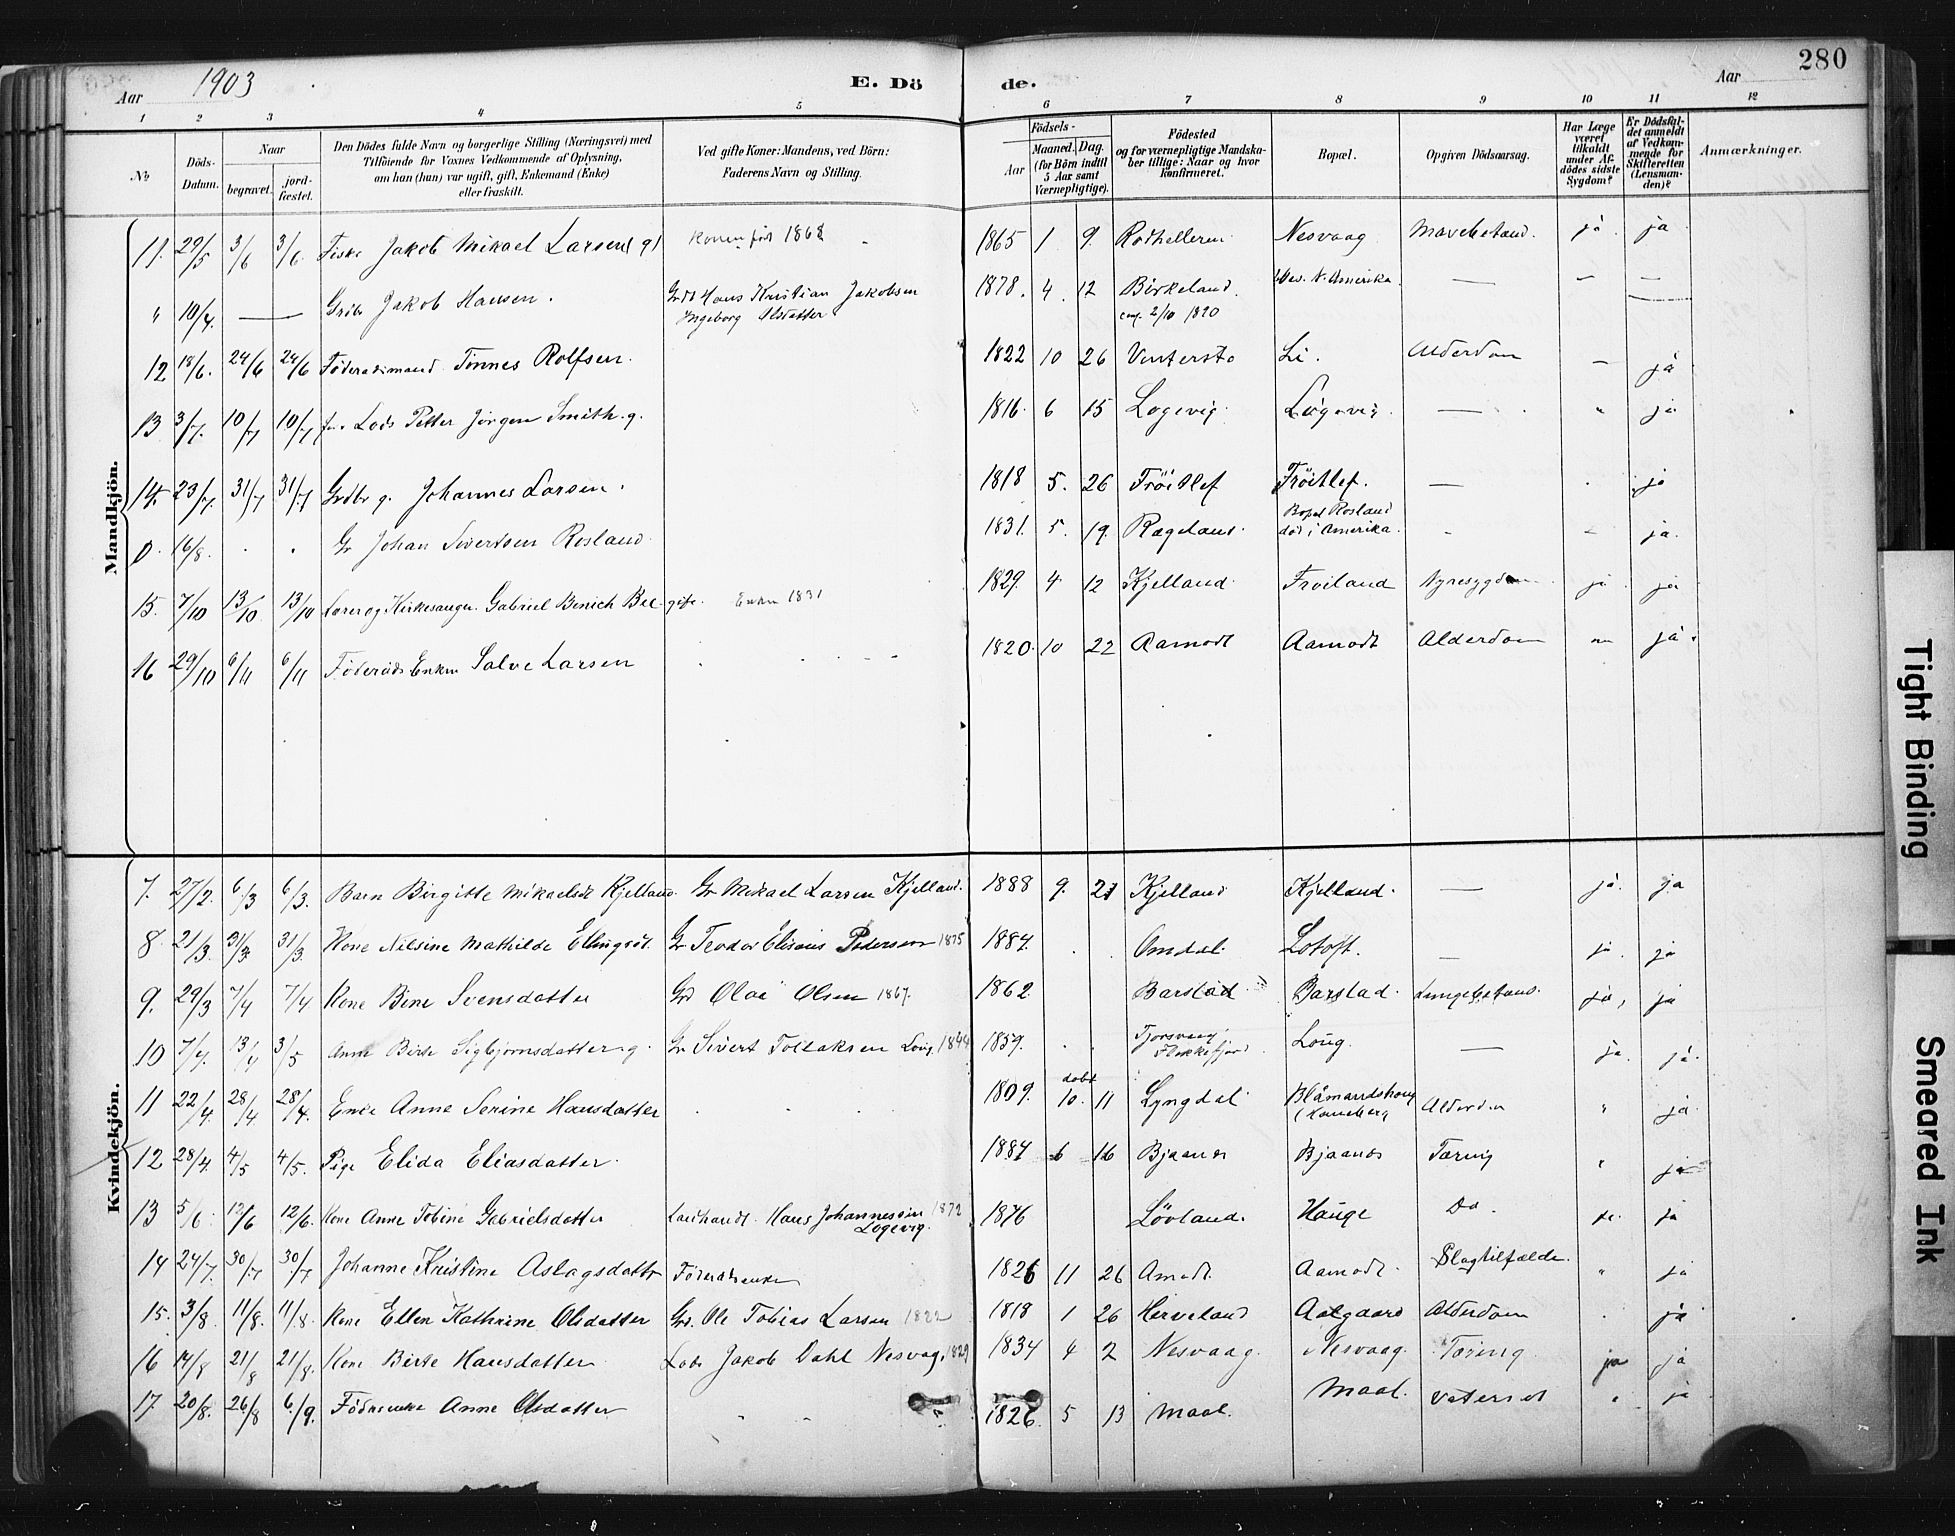 Aar 1903 E. Dö de. Aar 280
1 2 3 4 5 6 7 8 9 10 11 12
No Döds-Datum. Naar begravet. jord-fæstet. Den Dödes fulde Navn og borgerlige Stilling (Næringsvei) med Tilföiende for Voxnes Vedkommende af Oplysning, om han (hun) var ugift, gift, Enkemand (Enke) eller fraskilt. Ved gifte Koner: Mandens, ved Börn: Faderens Navn og Stilling. Födsels- Aar Maaned. Dag. (for Börn indtil 5 Aar samt Værnepligtige). Födested og for værnepligtige Mandskaber tillige: Naar og hvor konfirmeret. Bopæl. Opgiven Dödsaarsag. Har Læge været tilkaldt under Afdödes sidste Sygdom? Er Dödsfaldet anmeldt af Vedkommende for Skifteretten (Lensmanden)? Anmærkninger.
Mandkjön.
11. 29/5 3/6 3/6 Fisker Jakob Mikael Larsen Konen föd 1868 1865 1 9. Rödhelleren Nesvaag ja ja
" 10/4 — Jakob Hansen. Hans Kristian Jakobsen 1878. 4. 12 Birkeland. N. Amerika — — —
Ingeborg Olsdatter conf. 2/10
12 18/6. 24/6 24/6 Föderadsmand Tönnes Rolfsen. 1822 10 26 Li. Alderdom — ja
13 3/7. 10/7 10/7 Lods Petter Jörgen Smith. g. 1816. 6 15 Logevig. Logevig. — " ja
14. 23/7. 31/7 31/7 Grdbr g. Johannes Larsen. 1818 5. 26 Fröitlef Fröitlef. — ja
0. 16/8. Gr Johan Sivertsen Rosland 1831. 5. 19. Bopel Rosland
död i Amerika. - - ja.
15. 7/10 13/10 13/10 Lærer og Kirkesanger. Gabriel gift. Enken 1831 1829. 4 12 Kjelland Froiland Nyresygdom ja ja
16 29/10 6/11 6/11 Föderads Enkm Salve Larsen 1820. 10 22 Aamodt Aamodt Alderdom ja
Kvindekjön.
7. 27/2. 6/3 6/3. Barn Birgitte Mikaelsdt Kjelland. Gr Mikael Larsen Kjelland. 1888 9. 21 Kjelland Kjelland. — ja. ja
8. 21/3. 31/3. 31/3. Kone Nilsine Mathilde Ellingsdt. Gr Teodor Elisæus Pedersen 1875 1884. Omdal. Lotoft. — ja. ja
9. 29/3 7/4 7/4 Kone Bine Svensdatter Olai Olsen 1867. 1862. Barstad Barstad. ja, ja
10 7/4. 13/4 3/5 Anne Birte Sigbjörnsdatter g. Gr Sivert Tollaksen 1844 1859. Loug. — ja. ja.
Flekkefjord
11 22/4 28/4 28/4. Enke Anne Serine Hansdatter 1809. döbt 10. 11 Lyngdal Alderdom " ja.
12 28/4. 4/5 4/5. Pige Elida Eliasdatter. 1884 6 16 Bjaanes Bjaanes Tæring " ja
13 5/6. 12/6 12/6. Kone Anne Tobine Gabrielsdatter Landhandl. Hans Johannessen 1872 1876 Lövland. Hauge Do. ja
Logevig.
14 24/7. 30/7 30/7 Johanne Kristine Aslagsdattr Föderadsenke 1826 11 26 Amodt. Aamodt. Slagtilfælde. " ja
15. 3/8. 11/8. 11/8. Kone Ellen Kathrine Olsdatter Gr. Ole Tobias Larsen 1822 1818 1 26 Herveland Aalgaard Alderdom ja
16 14/8 21/8 21/8. Kone Birte Hansdatter Lods Jakob Dahl Nesvag. 1829 1834 4 2 Nesvaag. Nesvaag. Tæring ja ja
17. 20/8. 26/8 6/9. Anne Olsdatter 1826. 5 13 Maal. Maal. Vatersot " ja
Tight Binding
Smeared Ink